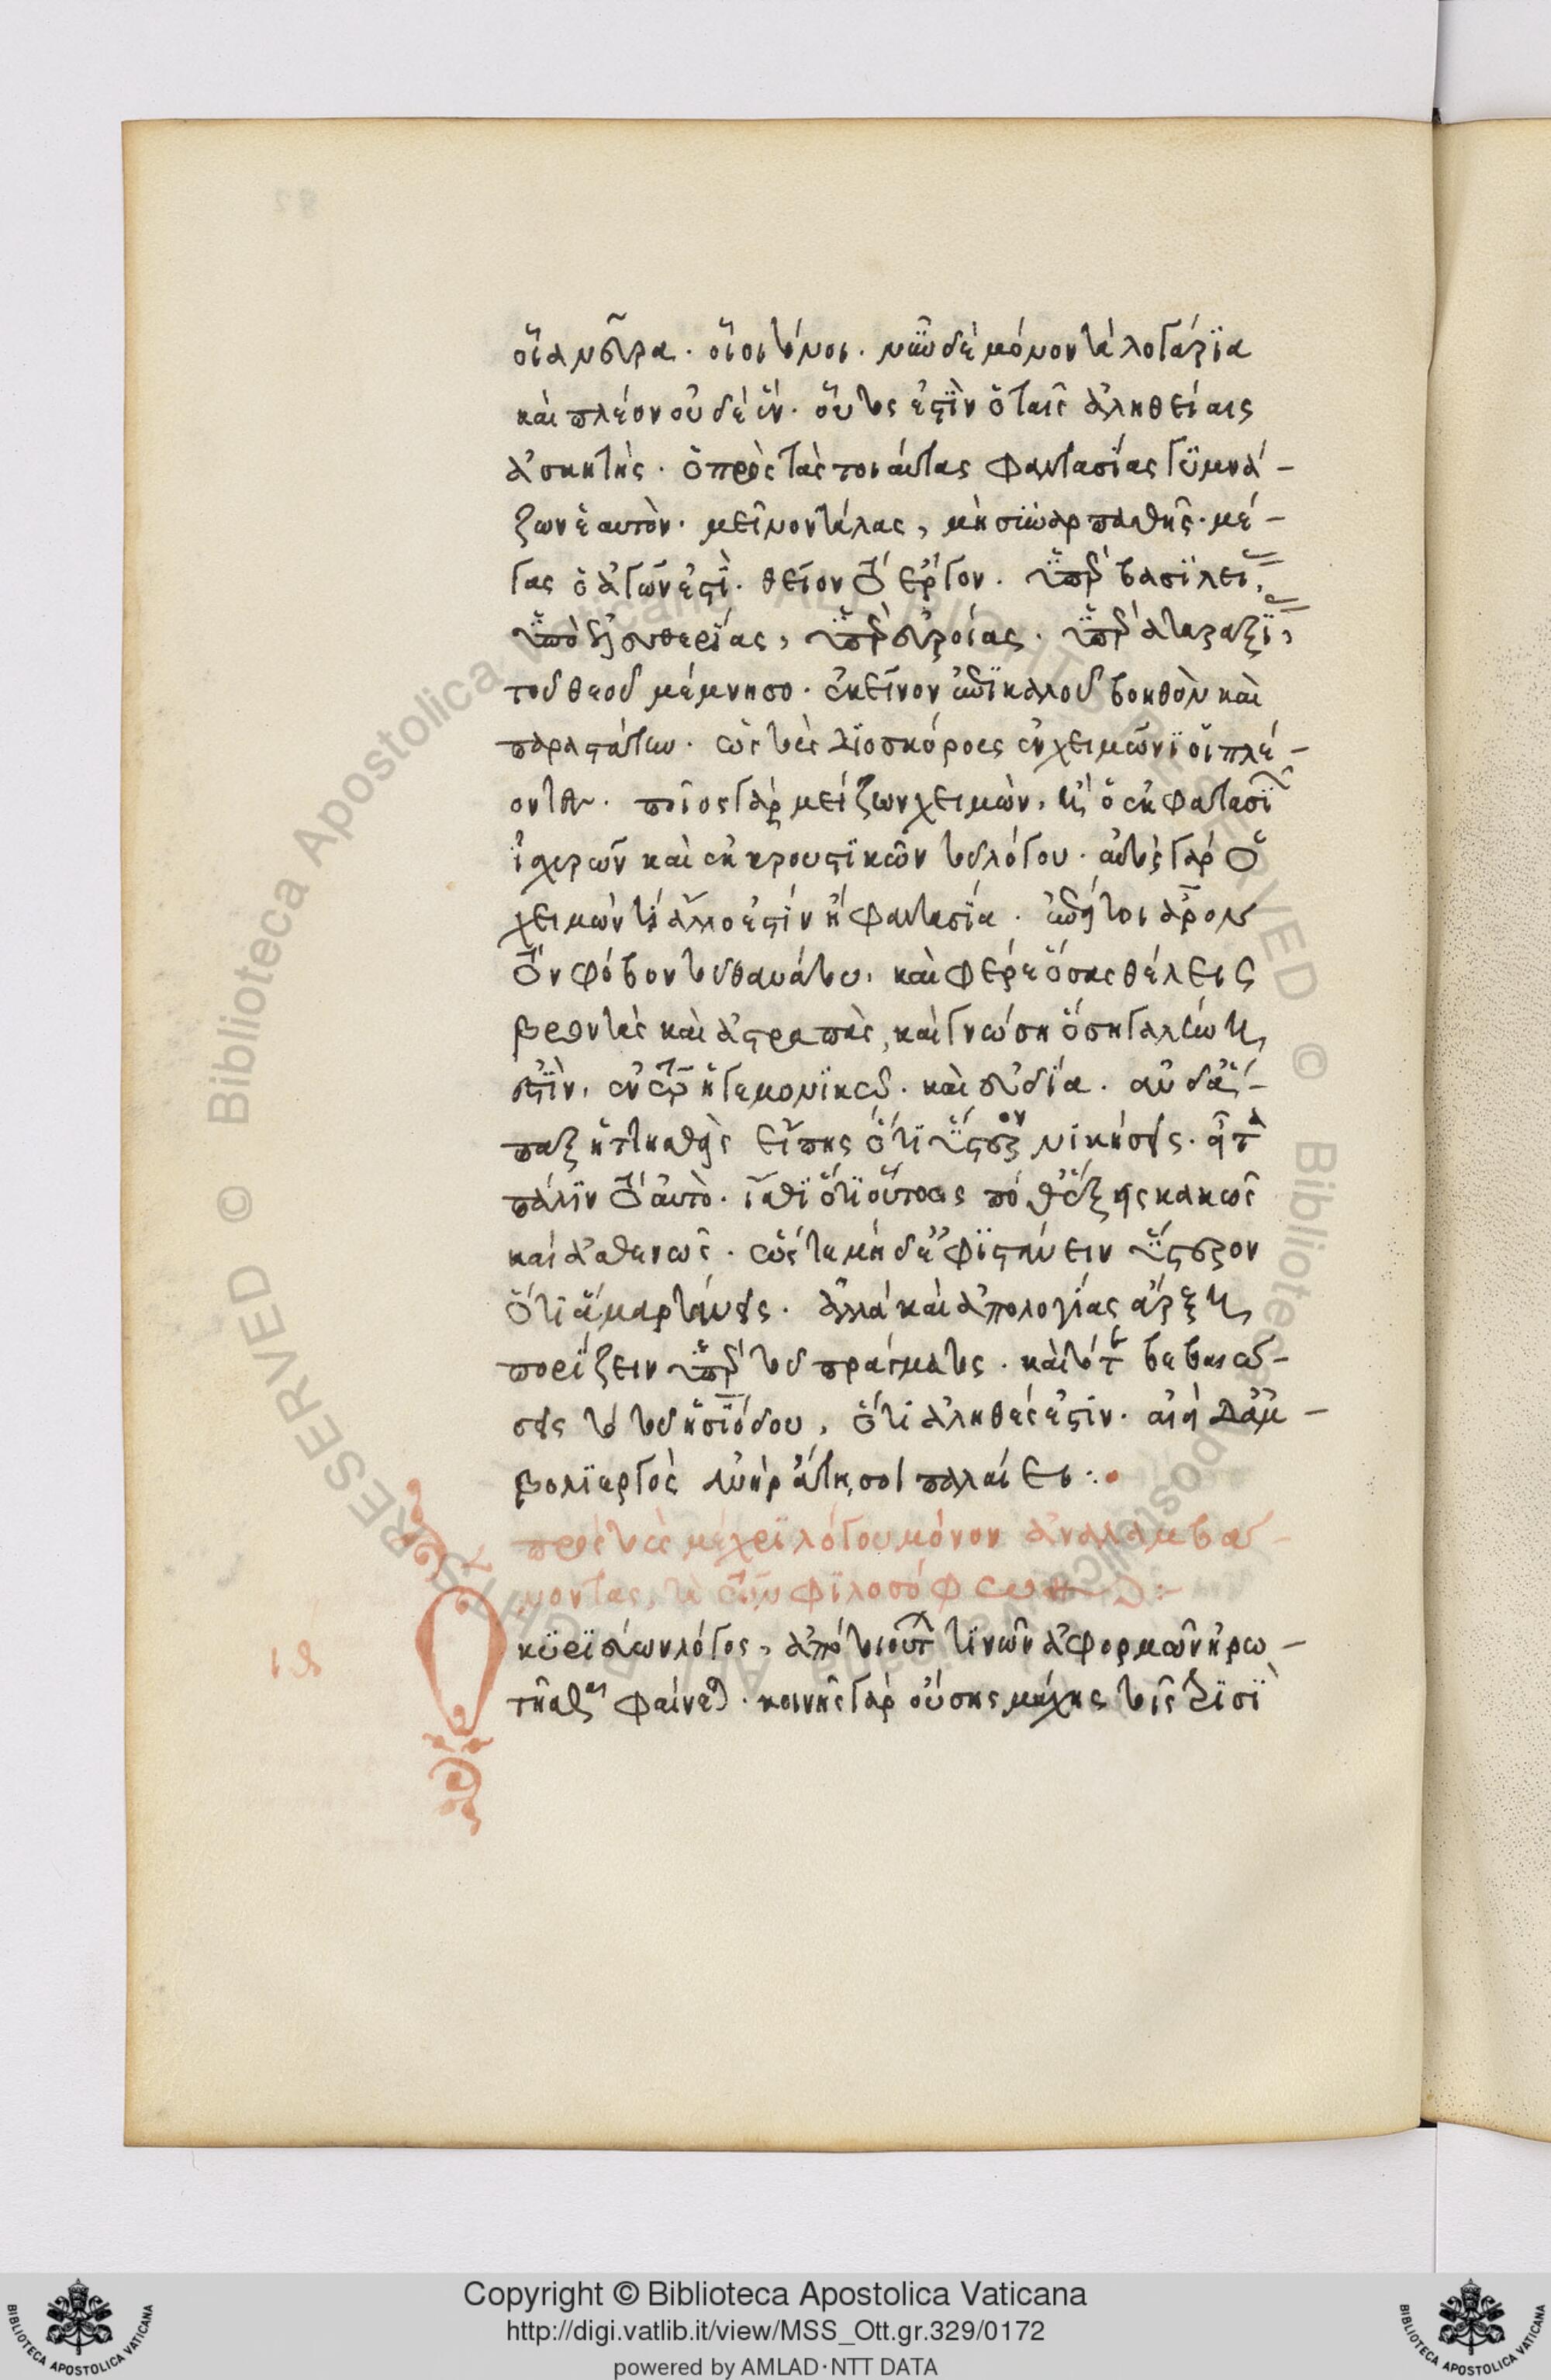 οἷα νεῦρα. οἷοι τόνοι. νῦν δὲ μόνον τὰ λογάρια
καὶ πλέον οὐδὲ ἕν. οὗτος ἐστὶν ὁ ταῖς ἀληθείαις
ἀσκητής. ὁ πρὸς τὰς τοιαύτας φαντασίας γυμνά-
ζων ἑαυτόν. μεῖνον τάλας, μὴ συναρπασθῇς. μέ-
γας ὁ ἀγών ἐστι. θεῖον τὸ ἔργον. ὑπὲρ βασιλείας,
ὑπὲρ ἐλευθερίας, ὑπὲρ εὐροίας. ὑπὲρ ἀταραξίας,
τοῦ θεοῦ μέμνησο. ἐκεῖνον ἐπικαλοῦ βοηθὸν καὶ
παραστάτην. ὡς τοὺς διοσκόρους ἐν χειμῶνι οἱ πλέ-
οντες. ποῖος γὰρ μείζων χειμὼν, ἢ ὁ ἐκ φαντασιῶν
ἰσχυρῶν καὶ ἐκκρουστικῶν τοῦ λόγου. αὐτὸς γὰρ ὁ
χειμὼν τί ἄλλο ἐστὶν ἢ φαντασία. ἐπεί τοι ἆρον
τὸν φόβον τοῦ θανάτου, καὶ φέρε ὅσας θέλεις
βροντὰς καὶ ἀστραπὰς, καὶ γνώσῃ ὅση γαλήνη
ἐστὶν, ἐν τῷ ἡγεμονικῷ. καὶ εὐδία. ἂν δ' ἅ-
παξ ἡττηθεὶς εἴπῃς ὅτι ὕστερον νικήσεις. εἶτα
πάλιν τὸ αὐτὸ. ἴσθι ὅτι οὕτως ποθ' ἕξεις κακῶς
καὶ ἀσθενῶς. ὥστε μηδ' ἐφιστάνειν ὕστερον
ὅτι ἁμαρτάνεις. ἀλλὰ καὶ ἀπολογίας ἄρξῃ
πορίζειν ὑπὲρ τοῦ πράγματος. καὶ τότε βεβαιώ-
σεις τὸ τοῦ ἡσιόδου, ὅτι ἀληθές ἐστιν. αἰεὶ δ' ἀμ-
βολιεργὸς ἀνὴρ ἄτῃσι παλαίει:.
πρὸς τοὺς μέχρι λόγου μόνον ἀναλαμβά-
νοντας, τὰ τῶν φιλοσόφων:-
ιθ Ὁ κυριεύων λόγος, ἀπὸ τοιούτων τινῶν ἀφορμῶν ἠρω-
τῆσθαι φαίνεται. κοινῆς γὰρ οὔσης μάχης τοῖς τρισὶ
Copyright © Biblioteca Apostolica Vaticana
http://digi.vatlib.it/view/MSS_Ott.gr.329/0172
powered by AMLAD·NTT DATA